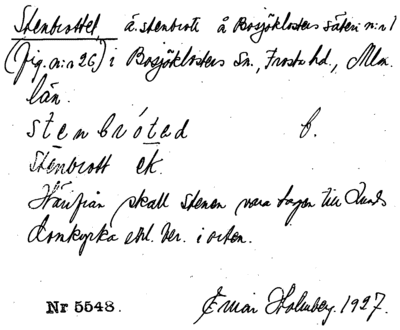 Stenbrottet, ä. stenbrott å Bosjöklosters säteri n:r 1
(fig. n:r 26) i Bosjöklosters Sn., Frosta hd., Mlm.
län.
stenbróted b.
Stenbrott ek.
Härifrån skall stenen vara tagen till Lunds
domkyrka enl. ber. i orten.
Nr 5548. Einar Holmberg. 1927.